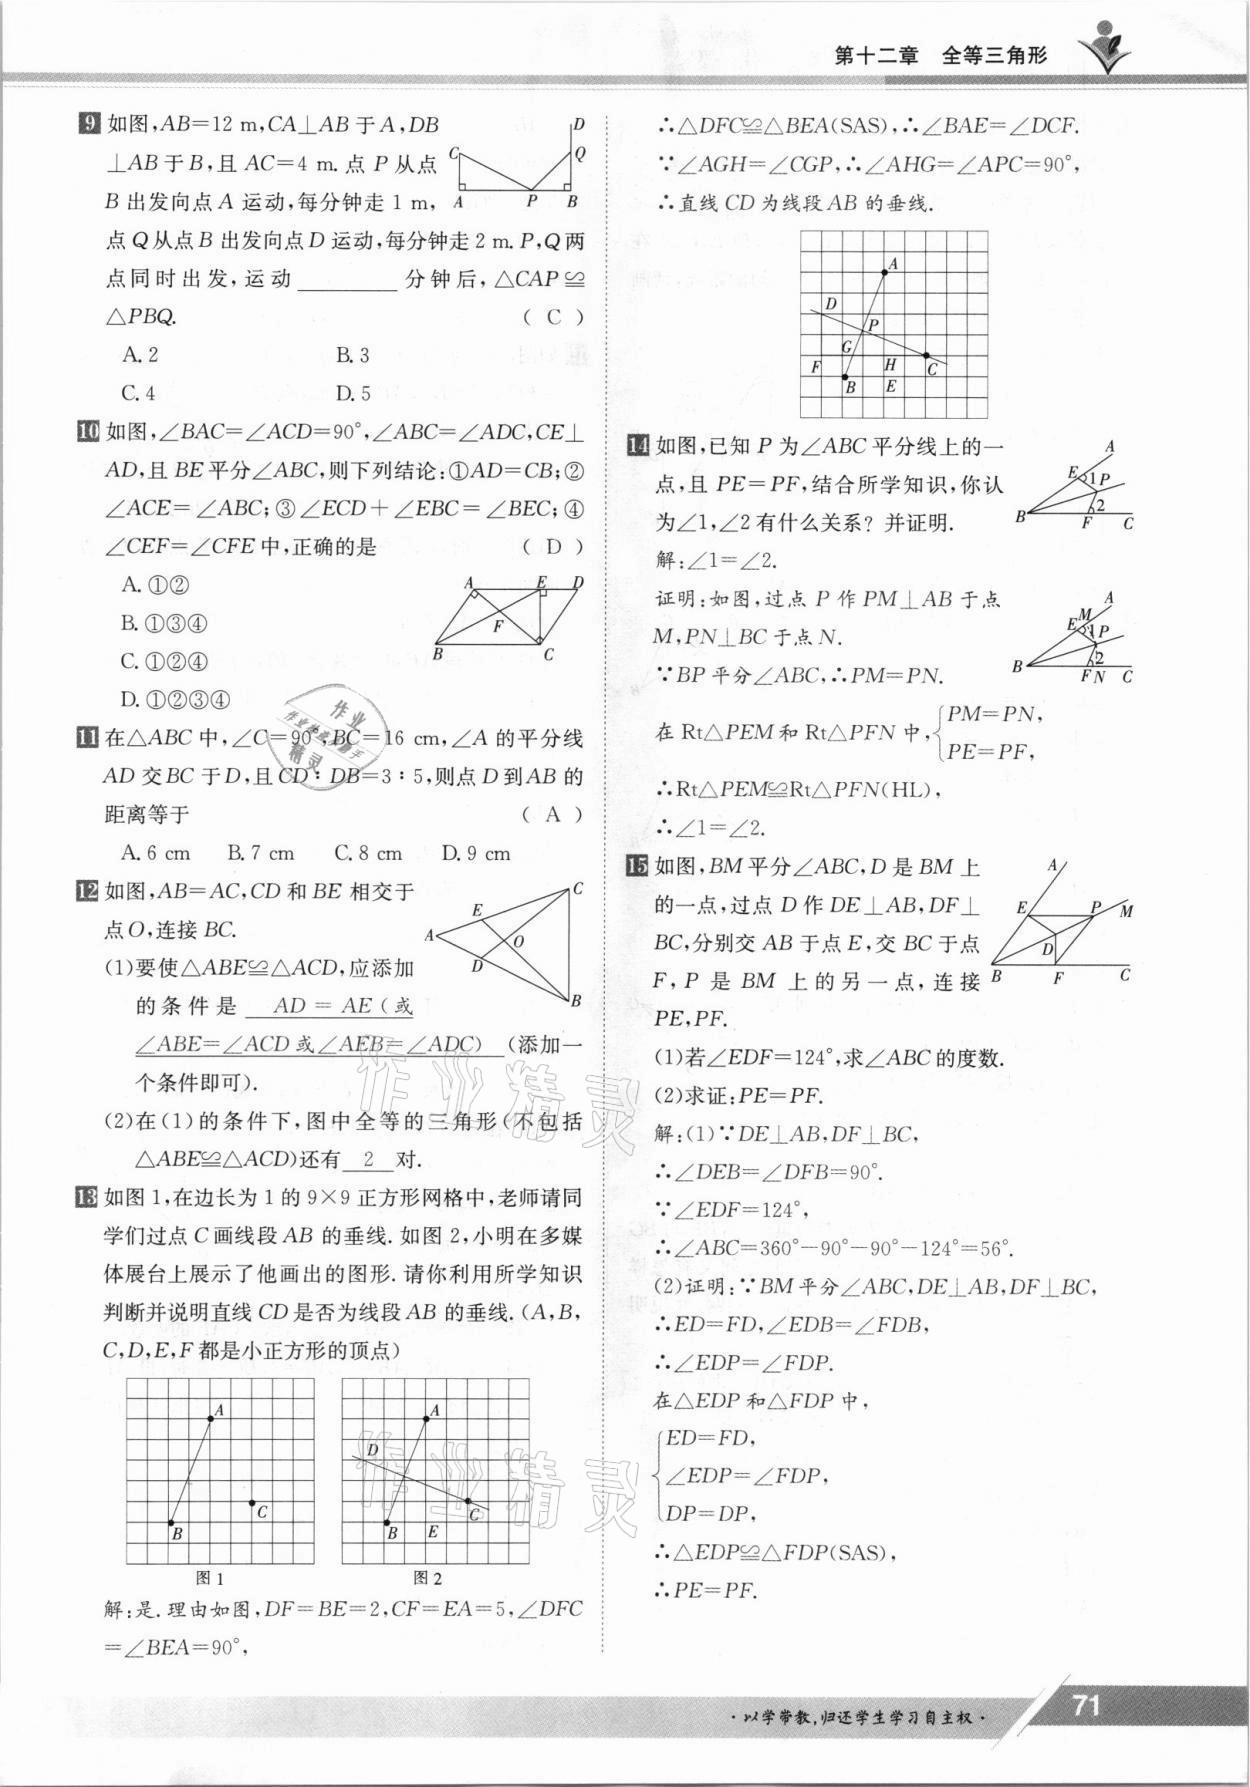 第十二章 全等三角形
9 如图,AB=12 m,CA⊥AB于A,DB
⊥AB于B,且AC=4 m.点P从点
B出发向点A运动,每分钟走1 m,
点Q从点B出发向点D运动,每分钟走2 m.P,Q两
点同时出发,运动________分钟后,△CAP≌
△PBQ. ( C )
A.2 B.3
C.4 D.5
C
D
Q
A
P
B
10 如图,∠BAC=∠ACD=90°,∠ABC=∠ADC,CE⊥
AD,且BE平分∠ABC,则下列结论:①AD=CB;②
∠ACE=∠ABC;③∠ECD+∠EBC=∠BEC;④
∠CEF=∠CFE中,正确的是 ( D )
A.①②
B.①③④
C.①②④
D.①②③④
A
E
D
F
B
C
11 在△ABC中,∠C=90°,BC=16 cm,∠A的平分线
AD交BC于D,且CD∶DB=3∶5,则点D到AB的
距离等于 ( A )
A.6 cm B.7 cm C.8 cm D.9 cm
12 如图,AB=AC,CD和BE相交于
点O,连接BC.
(1)要使△ABE≌△ACD,应添加
的条件是 AD=AE(或
∠ABE=∠ACD或∠AEB=∠ADC) (添加一
个条件即可).
(2)在(1)的条件下,图中全等的三角形(不包括
△ABE≌△ACD)还有 2 对.
C
E
A
O
D
B
13 如图1,在边长为1的9×9正方形网格中,老师请同
学们过点C画线段AB的垂线.如图2,小明在多媒
体展台上展示了他画出的图形.请你利用所学知识
判断并说明直线CD是否为线段AB的垂线.(A,B,
C,D,E,F都是小正方形的顶点)
A
C
B
图1
A
D
C
B
E
图2
解:是.理由如图,DF=BE=2,CF=EA=5,∠DFC
=∠BEA=90°,
∴△DFC≌△BEA(SAS),∴∠BAE=∠DCF.
∵∠AGH=∠CGP,∴∠AHG=∠APC=90°,
∴直线CD为线段AB的垂线.
A
D
P
G
F
H
C
B
E
14 如图,已知P为∠ABC平分线上的一
点,且PE=PF,结合所学知识,你认
为∠1,∠2有什么关系?并证明.
解:∠1=∠2.
证明:如图,过点P作PM⊥AB于点
M,PN⊥BC于点N.
∵BP平分∠ABC,∴PM=PN.
在Rt△PEM和Rt△PFN中,{PM=PN,
PE=PF,
∴Rt△PEM≌Rt△PFN(HL),
∴∠1=∠2.
A
E
1
P
2
B
F
C
A
M
E
1
P
2
B
F
N
C
15 如图,BM平分∠ABC,D是BM上
的一点,过点D作DE⊥AB,DF⊥
BC,分别交AB于点E,交BC于点
F,P是BM上的另一点,连接
PE,PF.
(1)若∠EDF=124°,求∠ABC的度数.
(2)求证:PE=PF.
解:(1)∵DE⊥AB,DF⊥BC,
∴∠DEB=∠DFB=90°.
∵∠EDF=124°,
∴∠ABC=360°-90°-90°-124°=56°.
(2)证明:∵BM平分∠ABC,DE⊥AB,DF⊥BC,
∴ED=FD,∠EDB=∠FDB,
∴∠EDP=∠FDP.
在△EDP和△FDP中,
{ED=FD,
∠EDP=∠FDP,
DP=DP,
∴△EDP≌△FDP(SAS),
∴PE=PF.
A
E
P
M
D
B
F
C
作业精灵
作业精灵
作业
精灵
·以学带教,归还学生学习自主权·
71